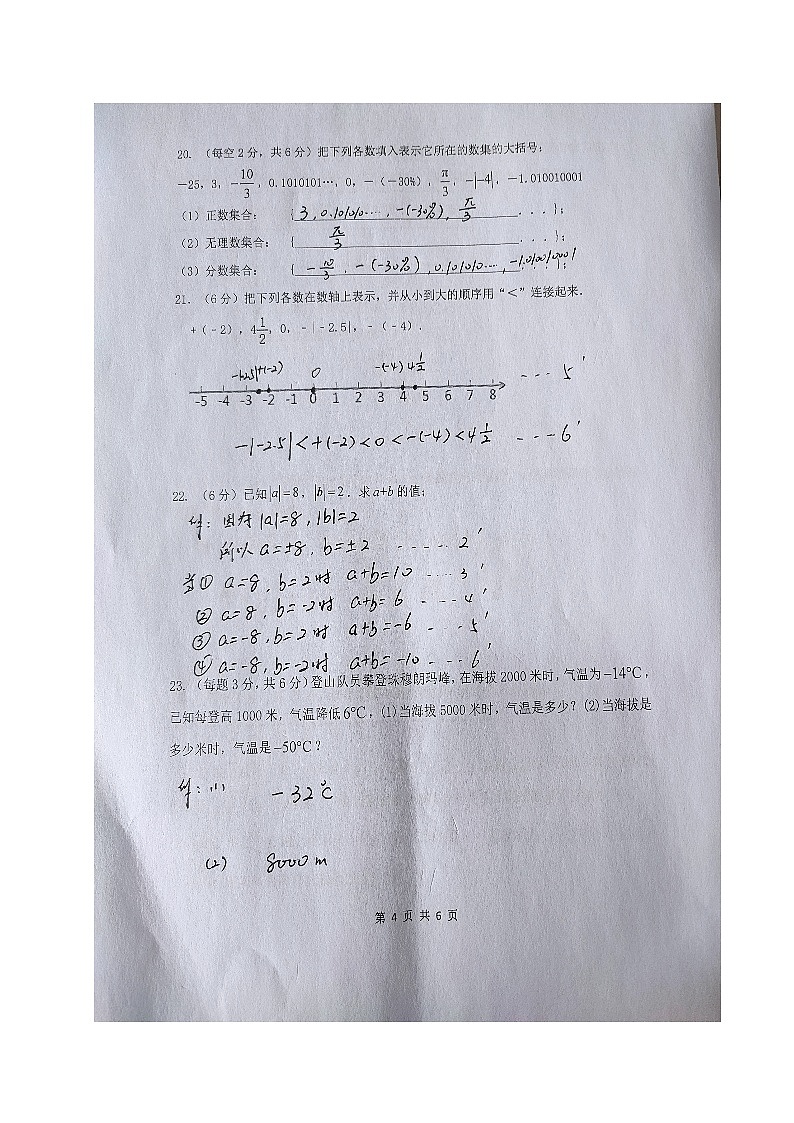 20. （每空2分，共6分）把下列各数填入表示它所在的数集的大括号：
－25，3，－10/3，0.1010101…，0，－（－30%），π/3，－|－4|，－1.010010001
（1）正数集合：｛ 3, 0.10101····, －(－30%), π/3 ...｝；
（2）无理数集合：｛ π/3 ...｝；
（3）分数集合：｛ －10/3 . －(－30%), 0.101010····, －1.010010001 ...｝；
21. （6分）把下列各数在数轴上表示，并从小到大的顺序用“＜”连接起来．
+（﹣2），4 1/2，0，﹣|﹣2.5|，﹣（﹣4）．
－|－2.5| +(－2) 0 －(－4) 4 1/2
-5 -4 -3 -2 -1 0 1 2 3 4 5 6 7 8 --- 5'
－|－2.5|<+(－2)<0<－(－4)<4 1/2 --- 6'
22. （6分）已知|a|=8，|b|=2．求a+b的值；
解：因为 |a|=8, |b|=2
所以 a=±8, b=±2 ----- 2'
当① a=8, b=2时 a+b=10 ---- 3'
② a=8, b=-2时 a+b=6 ---- 4'
③ a=-8, b=2时 a+b=-6 --- 5'
④ a=-8, b=-2时 a+b=-10 ---- 6'
23. （每题3分，共6分）登山队员攀登珠穆朗玛峰，在海拔2000米时，气温为－14°C，
已知每登高1000米，气温降低6°C，(1)当海拔5000米时，气温是多少？(2)当海拔是
多少米时，气温是－50°C？
解：(1) －32℃
(2) 8000 m
第 4 页 共 6 页